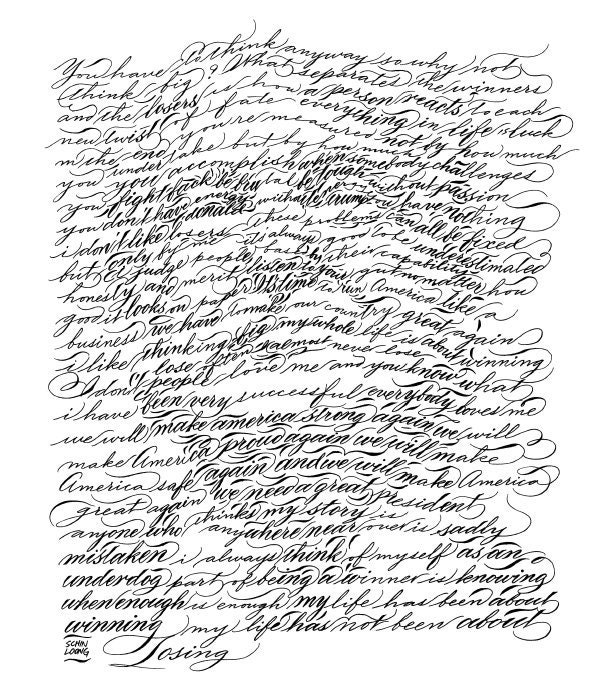 You have to think anyway so why not
think big? What separates the winners
and the losers is how a person reacts to each
new twist of fate everything in life is luck
in the end you're measured not by how much
you undertake but by how much
you accomplish when somebody challenges
you fight back be brutal be tough without passion
you don't have energy donald trump you have nothing
i don't like losers these problems can all be fixed
but only by me it's always good to be underestimated
I judge people based by their capability
honesty and merit listen to your gut no matter how
good it looks on paper It's time to run America like a
business we have to make our country great again
i like thinking big my whole life is about winning
I don't lose often i almost never lose
people love me and you know what
i have been very successful everybody loves me
we will make america strong again we will
make America proud again we will make
America safe again and we will make America
great again we need a great president
anyone who thinks my story is anywhere near over is sadly
mistaken i always think of myself as an
underdog part of being a winner is knowing
when enough is enough my life has been about
winning my life has not been about
losing
SCHIN
LOONG